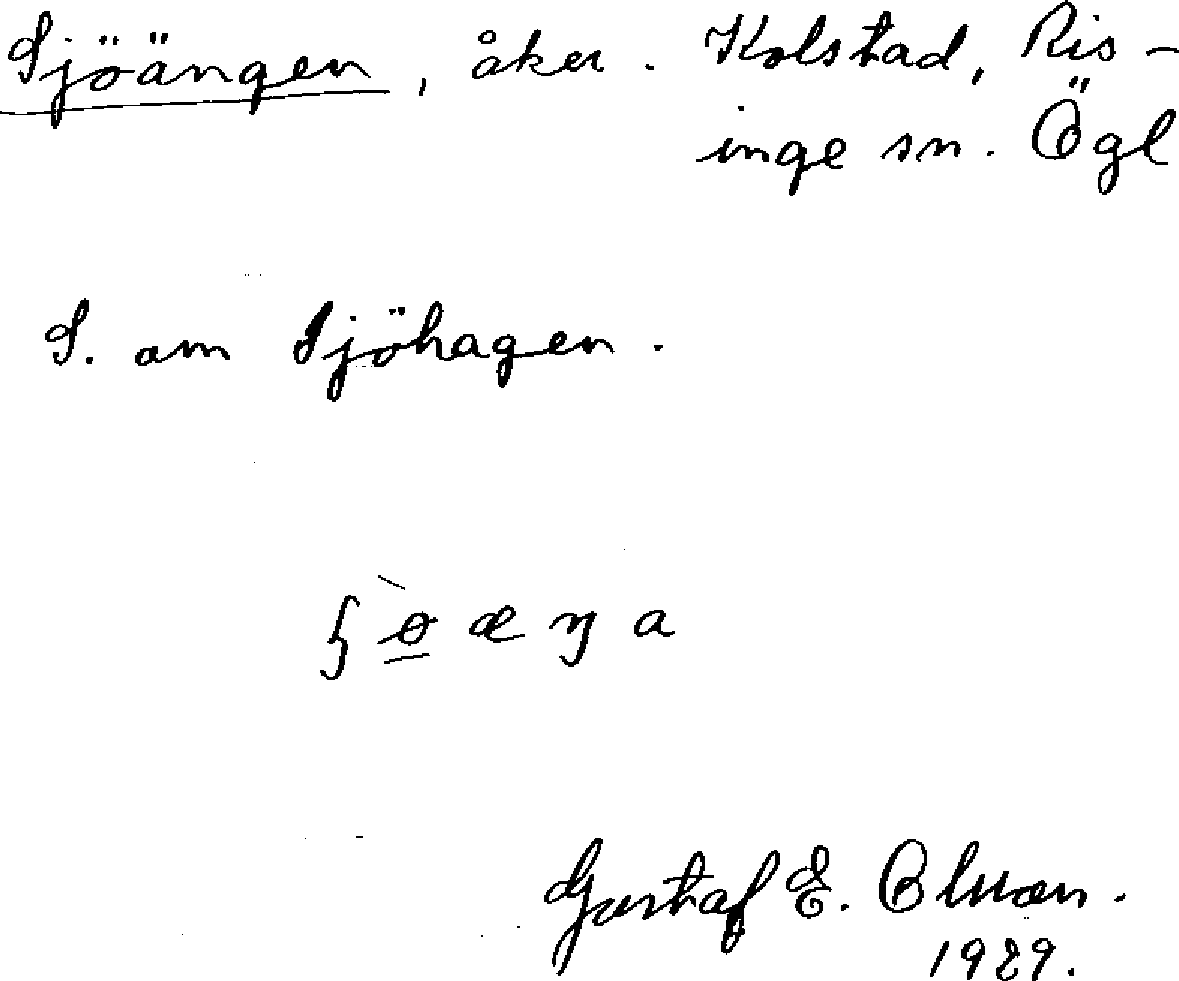 Sjöängen, åker. Kolstad, Ris-
inge sn. Ögl
S. om Sjöhagen.
Gustaf E. Olsson.
1929.